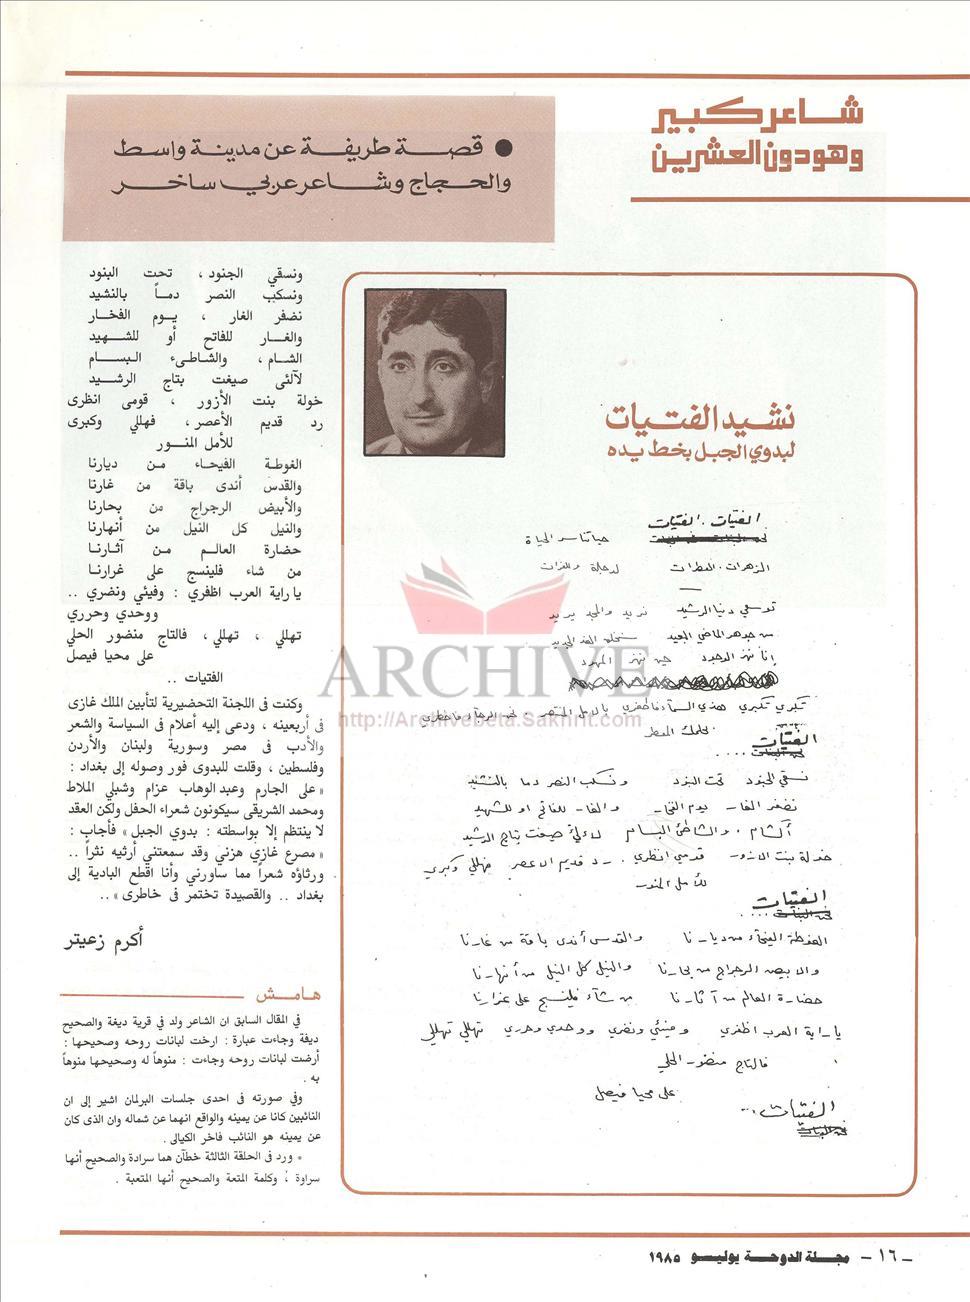 شاعر كبير
وهو دون العشرين
● قصة طريفة عن مدينة واسط
والحجاج وشاعر عربي ساخر
نشيد الفتيات
لبدوي الجبل بخط يده
الفتيات . الفتيات
حياتنا سر الحياة
الزهرات . العطرات
لدجلة وللفرات
توسعي دنيا الرشيد نريد والمجد يريد
من جوهر الماضي البعيد سنخلق الغد الجديد
إنا نهز الوجود حين نهز المهود
تكبري تكبري هذي السماء فاظفري بالأمل المنتصر
الفتيات
نسقي الجنود تحت البنود ونسكب النصر دما بالنشيد
نضفر الغار يوم الفخار والغار للفاتح او للشهيد
الشام . والشاطئ البسام لآلئ صيغت بتاج الرشيد
خولة بنت الازور قومي انظري . رد قديم الاعصر فهللي وكبري
للأمل المنور
الفتيات
الغوطة الفيحاء من ديارنا والقدس أندى باقة من غارنا
والابيض الرجراج من بحارنا والنيل كل النيل من أنهارنا
حضارة العالم من آثارنا من شاء فلينسج على غرارنا
يا راية العرب اظفري وفيئي ونضري ووحدي وحرري تهللي تهللي
فالتاج منضور الحلي
على محيا فيصل
الفتيات ...
ونسقي الجنود ، تحت البنود
ونسكب النصر دماً بالنشيد
نضفر الغار ، يوم الفخار
والغار للفاتح أو للشهيد
الشام ، والشاطىء البسام
لآلئى صيغت بتاج الرشيد
خولة بنت الأزور ، قومى انظرى
رد قديم الأعصر ، فهللي وكبرى
للأمل المنور
الغوطة الفيحاء من ديارنا
والقدس أندى باقة من غارنا
والأبيض الرجراج من بحارنا
والنيل كل النيل من أنهارنا
حضارة العالم من آثارنا
من شاء فلينسج على غرارنا
يا راية العرب اظفري : وفيئي ونضري ..
ووحدي وحرري
تهللي ، تهللي ، فالتاج منضور الحلي
على محيا فيصل
الفتيات ..
وكنت فى اللجنة التحضيرية لتأبين الملك غازى
فى أربعينه ، ودعى إليه أعلام فى السياسة والشعر
والأدب فى مصر وسورية ولبنان والأردن
وفلسطين ، وقلت للبدوى فور وصوله إلى بغداد :
« على الجارم وعبد الوهاب عزام وشبلي الملاط
ومحمد الشريقى سيكونون شعراء الحفل ولكن العقد
لا ينتظم إلا بواسطته : بدوي الجبل » فأجاب :
« مصرع غازي هزني وقد سمعتني أرثيه نثراً ..
ورثاؤه شعراً مما ساورني وأنا اقطع البادية إلى
بغداد .. والقصيدة تختمر فى خاطرى » ..
أكرم زعيتر
هامش
في المقال السابق ان الشاعر ولد في قرية ديغة والصحيح
ديفة وجاءت عبارة : ارخت لبانات روحه وصحيحها :
أرضت لبانات روحه وجاءت : منوهاً له وصحيحها منوهاً
به .
وفي صورته فى احدى جلسات البرلمان اشير إلى ان
النائبين كانا عن يمينه والواقع انهما عن شماله وان الذى كان
عن يمينه هو النائب فاخر الكيالى .
• ورد فى الحلقة الثالثة خطآن هما سرادة والصحيح أنها
سراوة ، وكلمة المتعة والصحيح أنها المتعبة .
ARCHIVE
http://Archivebeta.Sakhrit.com
- ١٦ - مجلة الدوحة يوليو ١٩٨٥